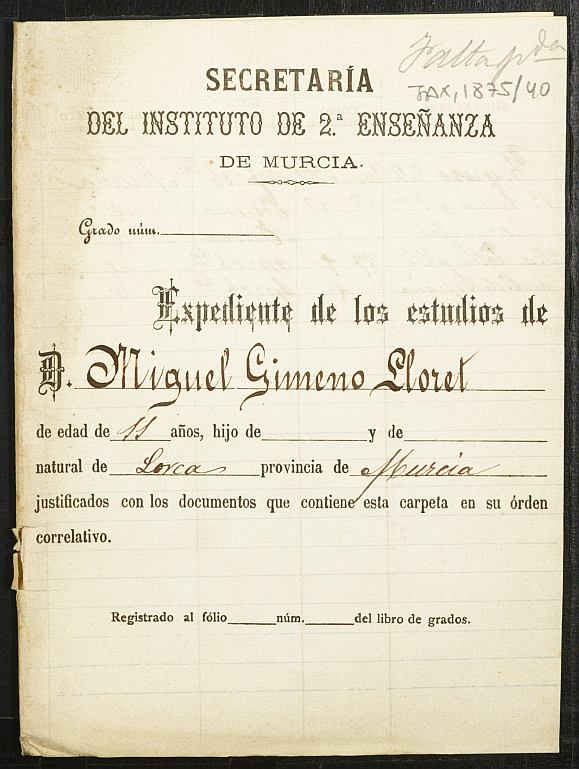 Falta pda
JAX, 1875/40
SECRETARÍA
DEL INSTITUTO DE 2.ª ENSEÑANZA
DE MURCIA.
Grado núm.
Expediente de los estudios de
D. Miguel Gimeno Lloret
de edad de 11 años, hijo de y de
natural de Lorca provincia de Murcia
justificados con los documentos que contiene esta carpeta en su órden
correlativo.
Registrado al fólio núm. del libro de grados.